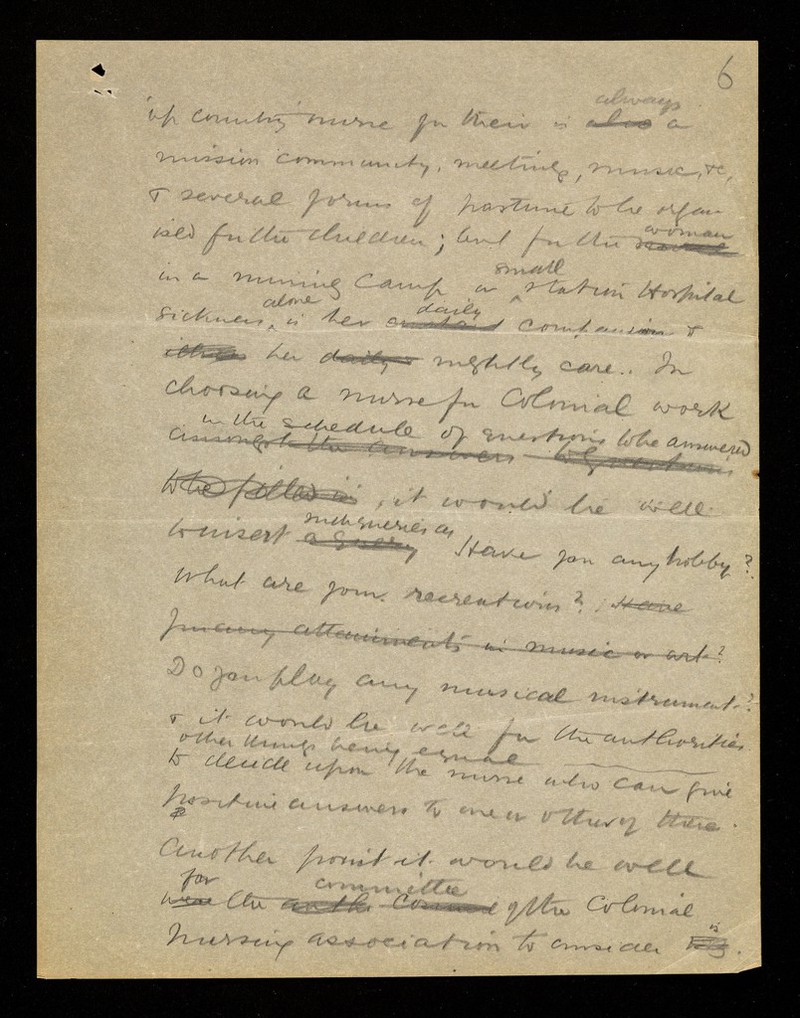 6
always
'up country' nurse for their is also a
mission community, meetings, music, &c,
& several forms of pastime to be organ
ised for the children; but for the
woman
in a mining camp or small station Hospital
alone daily
sickness, is her constant companion &
her daily & nightly care.. In
choosing a nurse for Colonial work
in the schedule of questions to be answered
amongst the answers
to be filled in, it would be well
such queries as
to insert a query Have you any hobby?
What are your recreations? Have
you any attainments in music or art?
Do you play any musical instrument?
& it would be well for the authorities
other things being equal
to decide upon the nurse who can give
positive answers to one or other of these.
Another point it would be well
for committee
were the Council of the Colonial
Nursing association to consider is